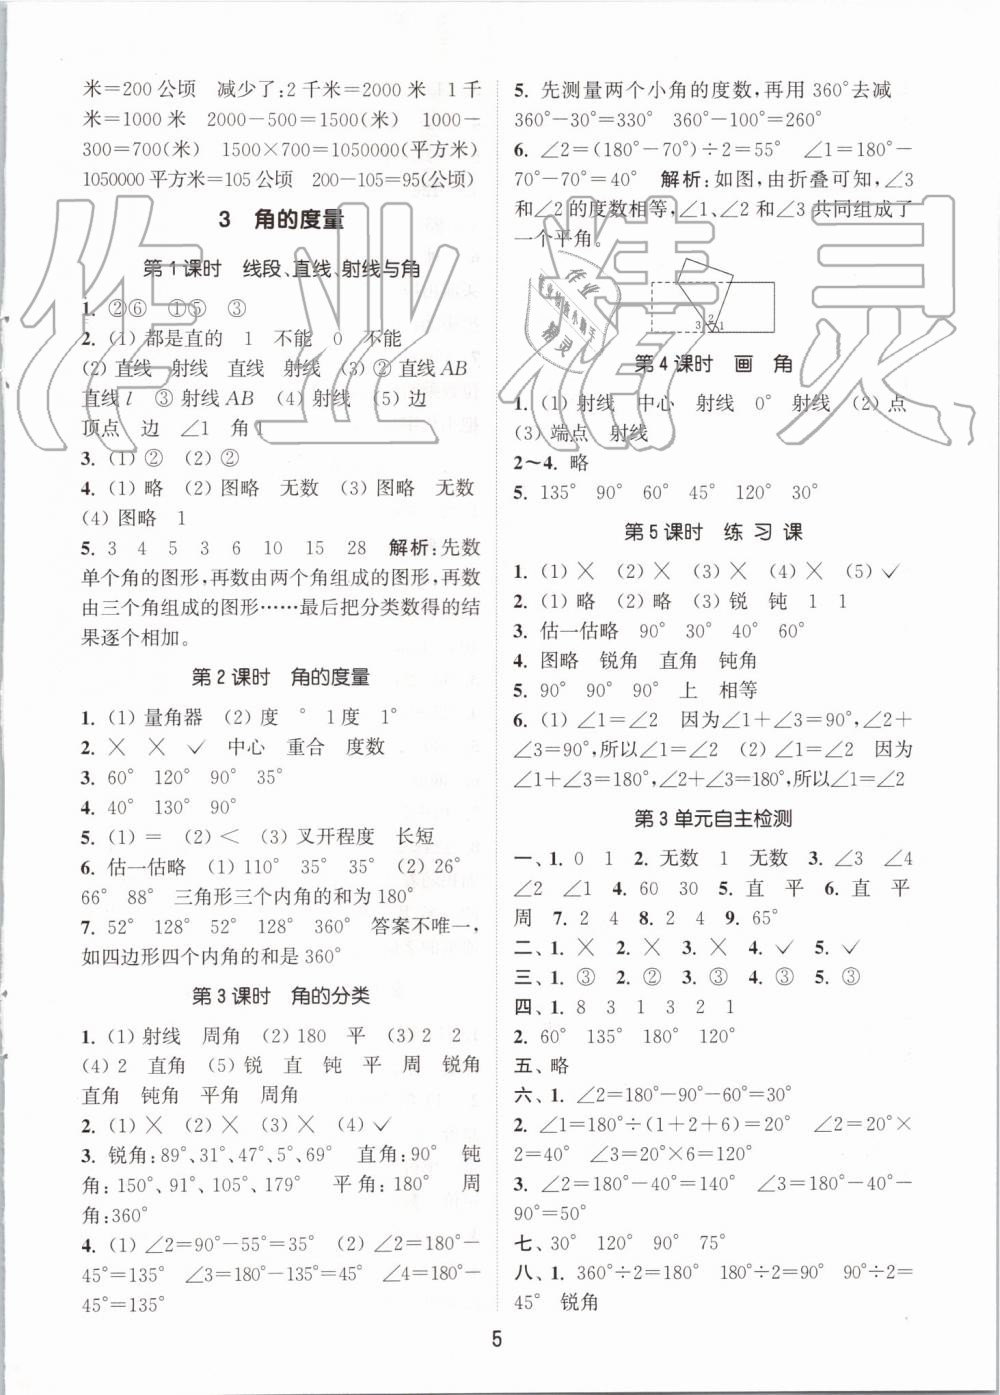 米=200公顷　减少了:2千米=2000米　1千
米=1000米　2000-500=1500(米)　1000-
300=700(米)　1500×700=1050000(平方米)
1050000平方米=105公顷　200-105=95(公顷)
3　角的度量
第1课时　线段、直线、射线与角
1. ②⑥　①⑤　③
2. (1)都是直的　1　不能　0　不能
(2)直线　射线　直线　射线　(3)②直线AB
直线l　③射线AB　(4)射线　(5)边
顶点　边　∠1　角1
3. (1)②　(2)②
4. (1)略　(2)图略　无数　(3)图略　无数
(4)图略　1
5. 3　4　5　3　6　10　15　28　解析:先数
单个角的图形,再数由两个角组成的图形,再数
由三个角组成的图形……最后把分类数得的结
果逐个相加。
第2课时　角的度量
1. (1)量角器　(2)度　°　1度　1°
2. ×　×　✓　中心　重合　度数
3. 60°　120°　90°　35°
4. 40°　130°　90°
5. (1)=　(2)<　(3)叉开程度　长短
6. 估一估略　(1)110°　35°　35°　(2)26°
66°　88°　三角形三个内角的和为180°
7. 52°　128°　52°　128°　360°　答案不唯一,
如四边形四个内角的和是360°
第3课时　角的分类
1. (1)射线　周角　(2)180　平　(3)2　2
(4)2　直角　(5)锐　直　钝　平　周　锐角
直角　钝角　平角　周角
2. (1)×　(2)×　(3)×　(4)✓
3. 锐角:89°、31°、47°、5°、69°　直角:90°　钝
角:150°、91°、105°、179°　平角:180°　周
角:360°
4. (1)∠2=90°-55°=35°　(2)∠2=180°-
45°=135°　∠3=180°-135°=45°　∠4=180°
-45°=135°
5. 先测量两个小角的度数,再用360°去减
360°-30°=330°　360°-100°=260°
6. ∠2=(180°-70°)÷2=55°　∠1=180°-
70°-70°=40°　解析:如图,由折叠可知,∠3
和∠2的度数相等,∠1、∠2和∠3共同组成了
一个平角。
3 2 1
第4课时　画　角
1. (1)射线　中心　射线　0°　射线　(2)点
(3)端点　射线
2~4. 略
5. 135°　90°　60°　45°　120°　30°
第5课时　练习课
1. (1)×　(2)×　(3)×　(4)×　(5)✓
2. (1)略　(2)略　(3)锐　钝　1　1
3. 估一估略　90°　30°　40°　60°
4. 图略　锐角　直角　钝角
5. 90°　90°　90°　上　相等
6. (1)∠1=∠2　因为∠1+∠3=90°,∠2+
∠3=90°,所以∠1=∠2　(2)∠1=∠2　因为
∠1+∠3=180°,∠2+∠3=180°,所以∠1=∠2
第3单元自主检测
一、1. 0　1　2. 无数　1　无数　3. ∠3　∠4
∠2　∠1　4. 60　30　5. 直　平　6. 直　平
周　7. 2　4　8. 2　4　9. 65°
二、1. ×　2. ×　3. ×　4. ✓　5. ✓
三、1. ③　2. ②　3. ③　4. ③　5. ③
四、1. 8　3　1　3　2　1
2. 60°　135°　180°　120°
五、略
六、1. ∠2=180°-90°-60°=30°
2. ∠1=180°÷(1+2+6)=20°　∠2=20°×
2=40°　∠3=20°×6=120°
3. ∠2=180°-40°=140°　∠3=180°-40°-
90°=50°
七、30°　120°　90°　75°
八、1. 360°÷2=180°　180°÷2=90°　90°÷2=
45°　锐角
5
作业精灵
作业
精灵